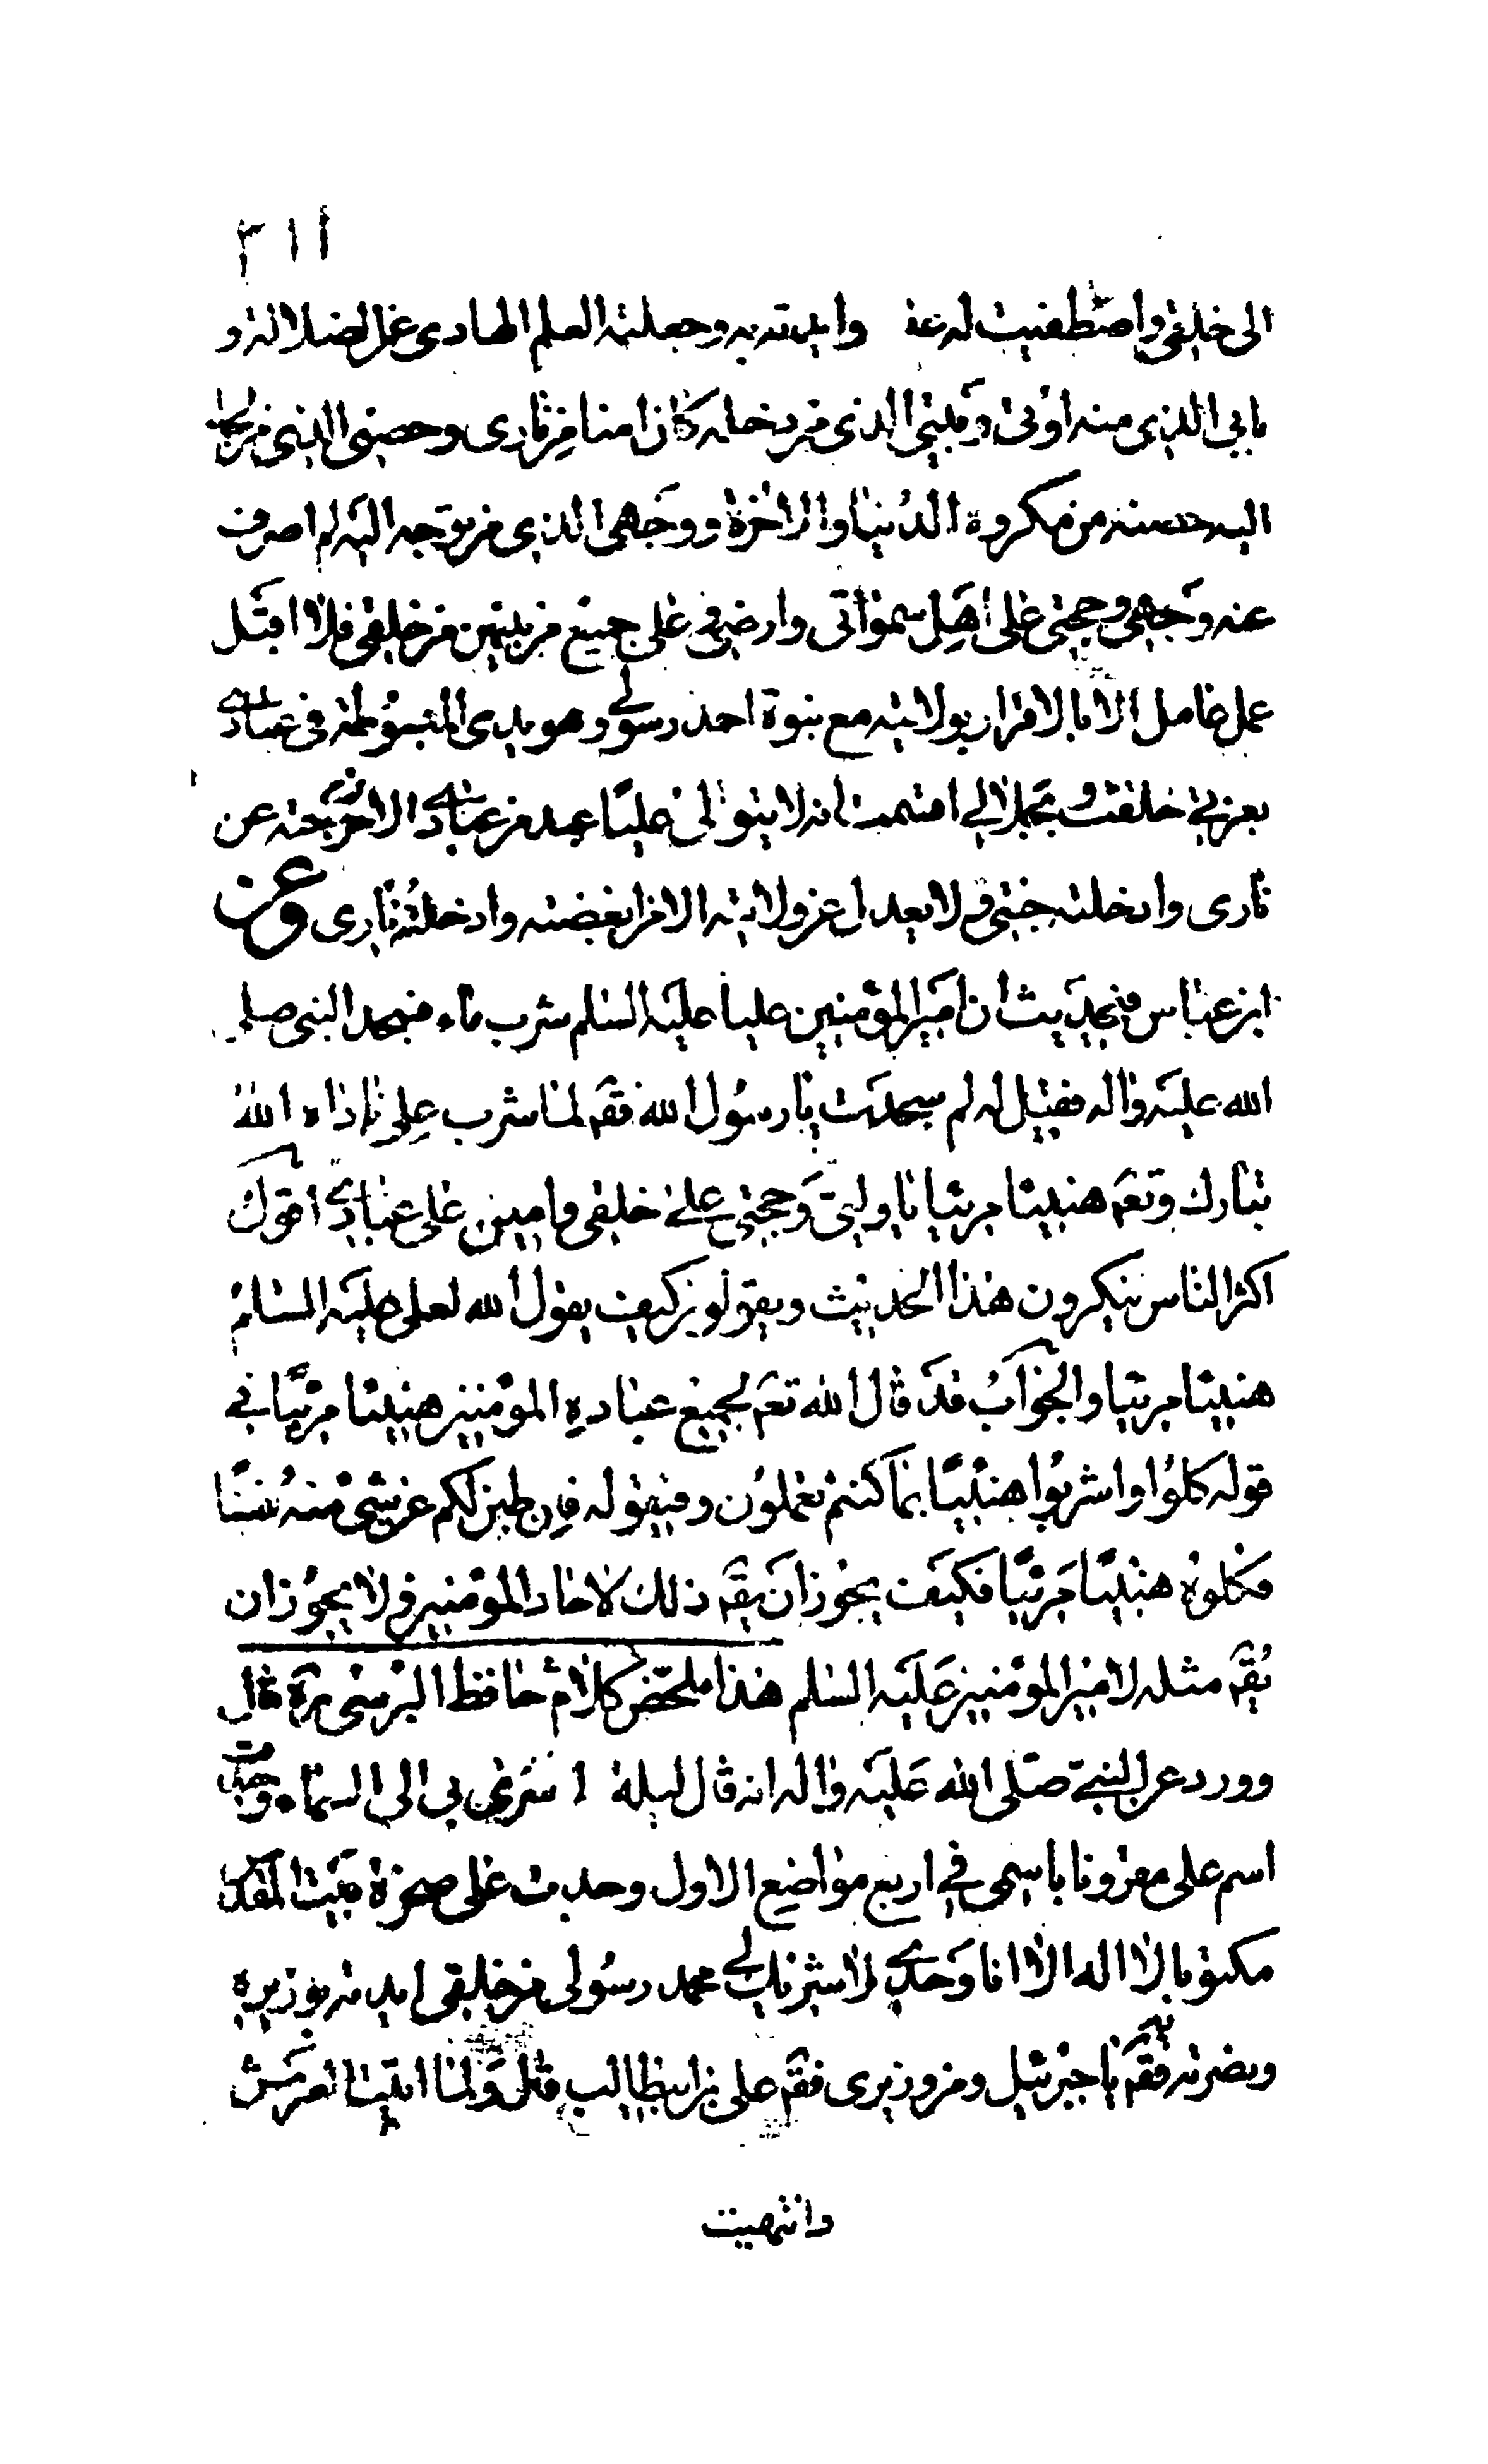 ٣١١
الى خلقى واصطفيت له عذ وايدته به وجعلته العلم الهادى عن الضلالة و
بابى الذى منه اوتى وبيتى الذى من دخله كان امنا من نارى وحصنى الذى من لجا
اليه حصنته من مكروه الدنيا والاخرة ووجهى الذى من توجه اليه لم اصرف
عنه وجهى وحجتى على اهل سمواتى وارضى على جميع من بينهن من خلقى فلا اقبل
عمل عامل الا بالاقرار بولايته مع نبوة احمد رسولى وهو يدى المبسوطة فى عبادى
بعزتى خلقت وبجلالى اقسمت انه لا يتولى عليا عبد من عبادى الا زحزحته عن
نارى وادخلته جنتى ولا يعدل عن ولايته الا من ابغضته وادخلته نارى وعن
ابن عباس فى حديث ان امير المؤمنين عليا عليه السلم شرب ماء فسجد النبى صلى
الله عليه واله فقيل له لم سجدت يا رسول الله فقه لما شرب على ناداه الله
تبارك وتعم هنيئا مريئا يا وليى وحجتى على خلقى وامينى على عبادى اقول
اكثر الناس ينكرون هذا الحديث ويقولون كيف يقول الله لعلى عليه السلم
هنيئا مريئا والجواب قد قال الله تعم لجميع عباده المؤمنين هنيئا مريئا فى
قوله كلوا واشربوا هنيئا بما كنتم تعملون وفى قوله فان طبن لكم عن شئ منه نفسا
فكلوه هنيئا مريئا فكيف يجوز ان يقه ذلك لاحاد المؤمنين ولا يجوز ان
يقه مثله لامير المؤمنين عليه السلم هذا ملخص كلام حافظ البرسى ره قال
وورد عن النبى صلى الله عليه واله انه قال ليلة اسرى بى الى السماء وجدت
اسم على مقرونا باسمى فى اربع مواضع الاول وجدت على صخرة بيت المقدس
مكتوبا لا اله الا انا وحدى لا شريك لى محمد رسولى من خلقى ايدته بوزيره
ونصرته به فقه يا جبرئيل ومن وزيرى فقه على بن ابيطالب قال ولما اتيت العرش
وانتهيت